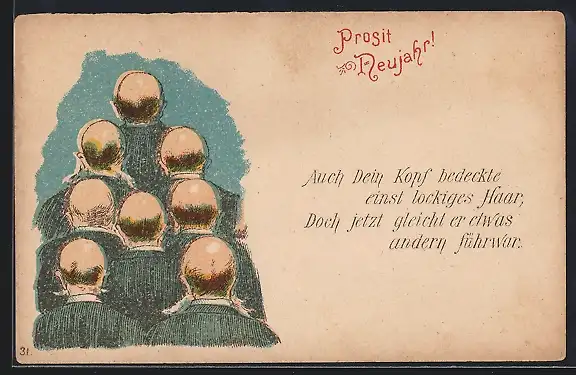 Prosit
Neujahr!
Auch Dein Kopf bedeckte
einst lockiges Haar,
Doch jetzt gleicht er etwas
andern führwar.
31.